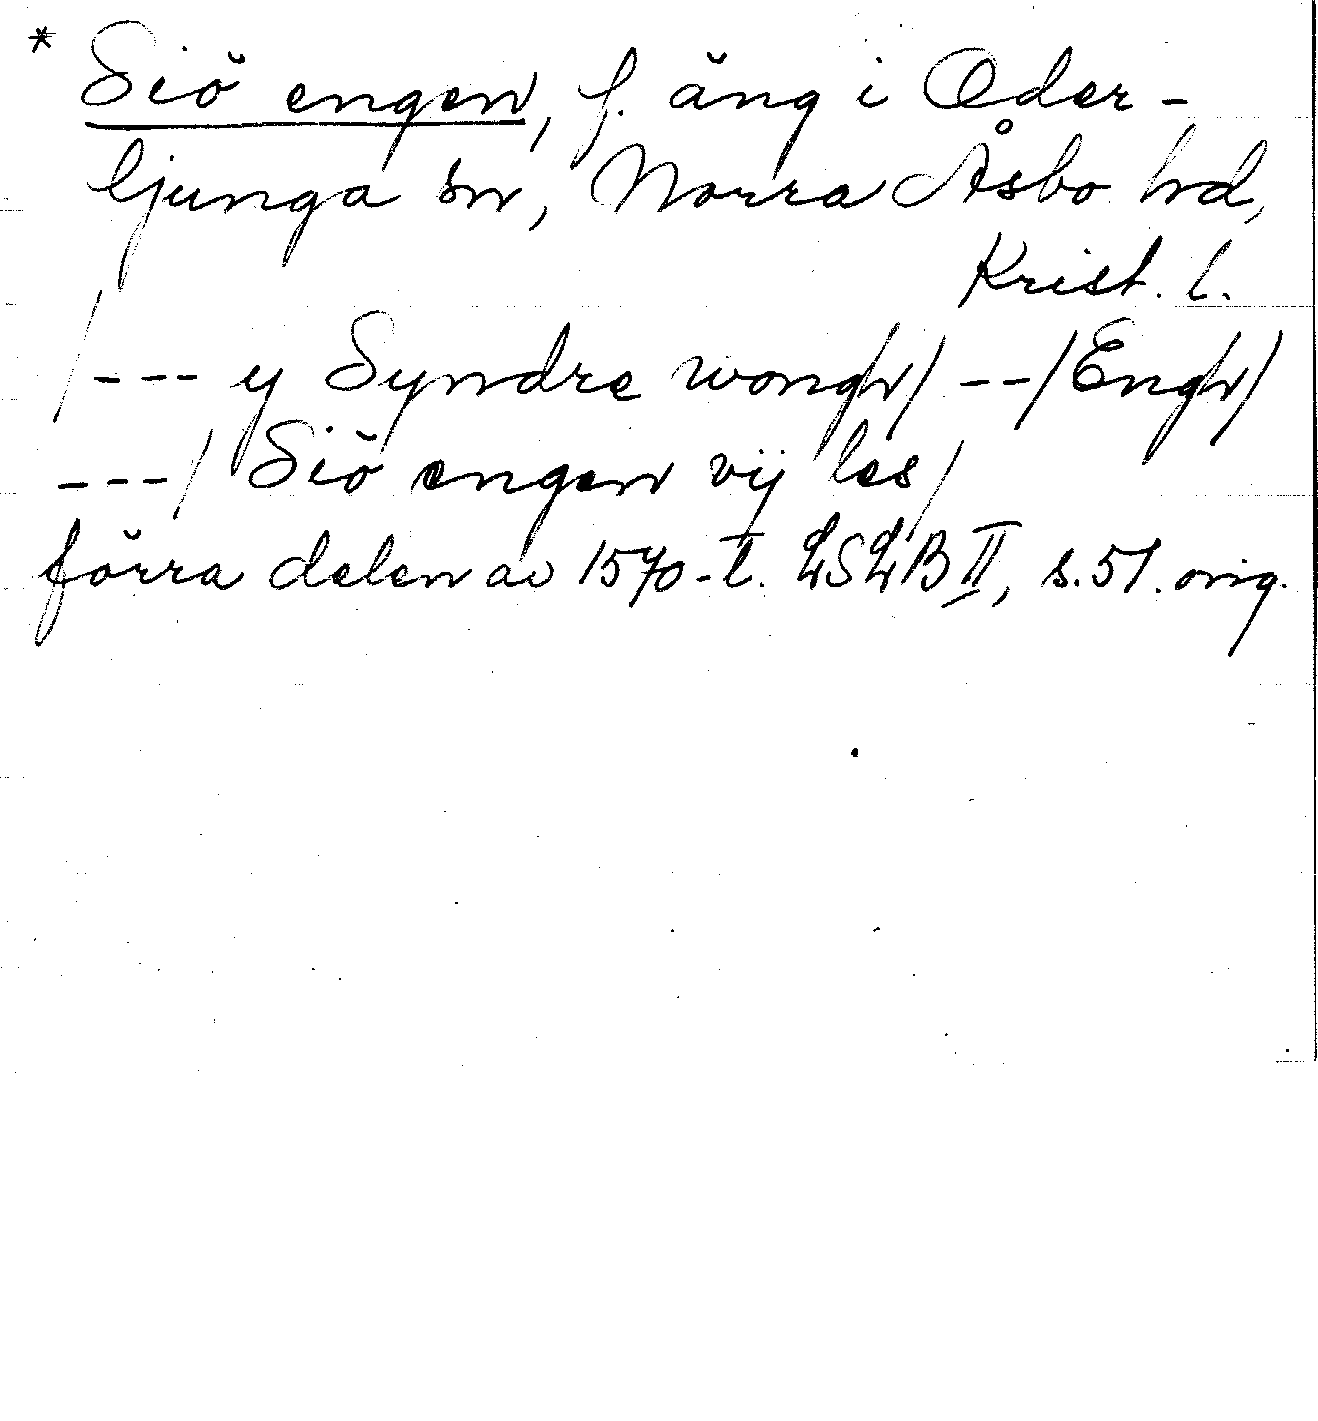 * Siö engen, f. äng i Oder-
ljunga sn, Norra Åsbo hd,
Krist. l.
/--- y Syndre wongh/ --/Engh/
---/ Siö engen vij les/
förra delen av 1570-t. LSLB II, s.51. orig.